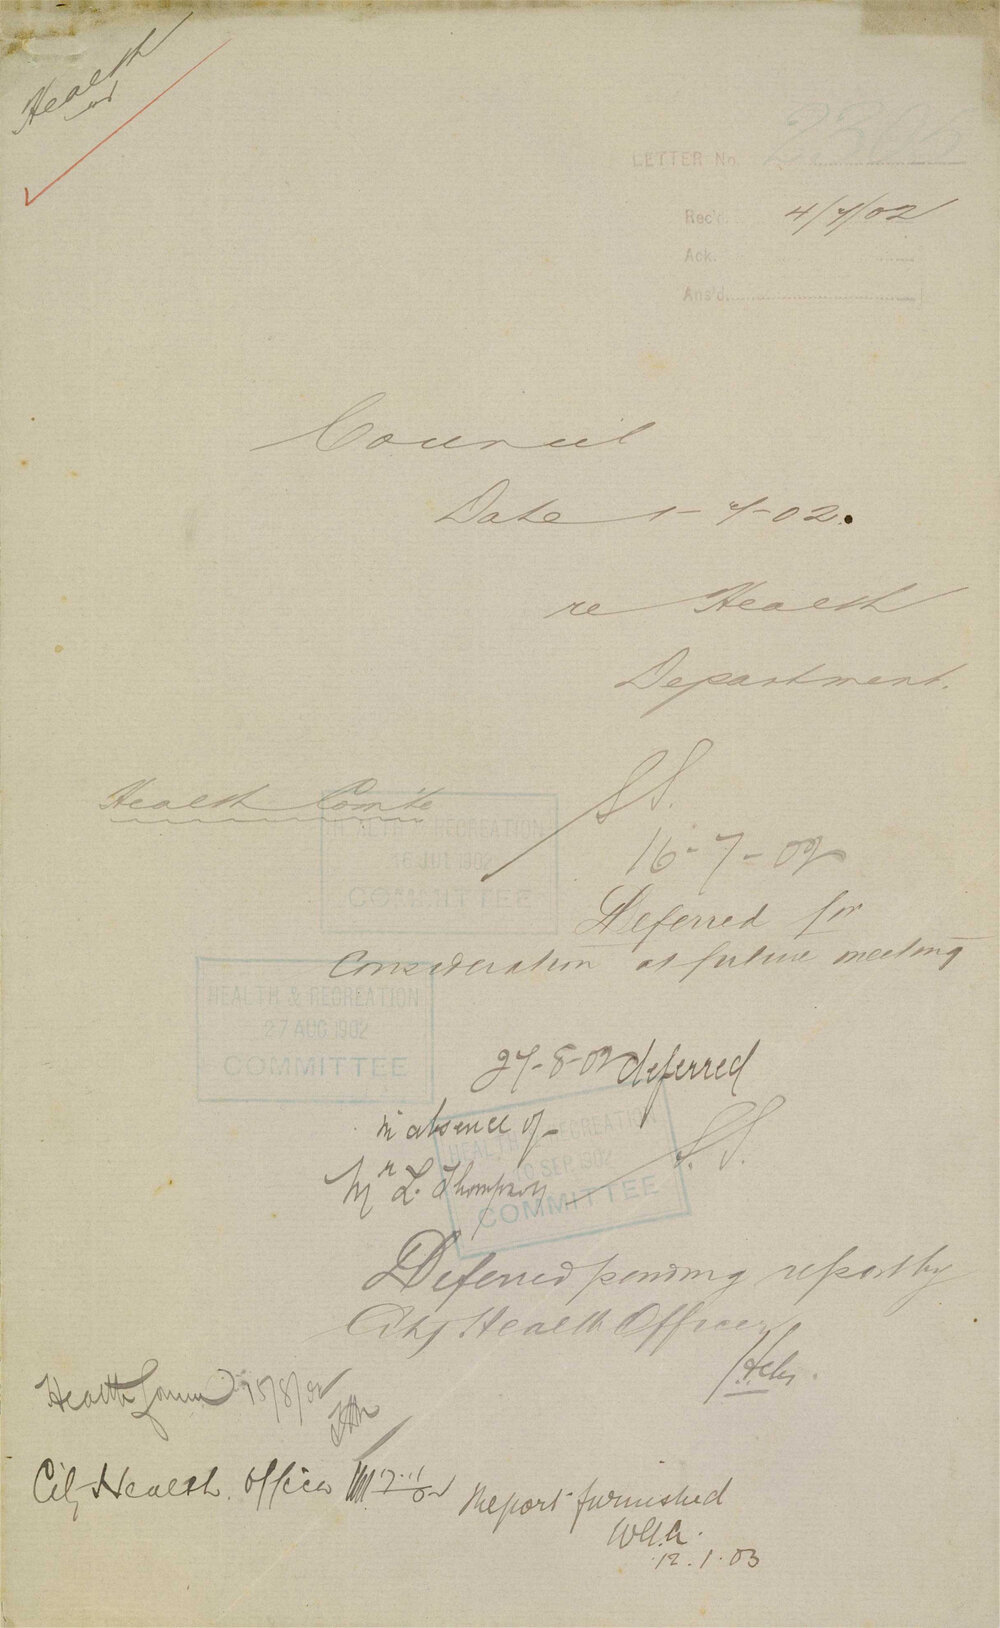 Health
LETTER No. 2305
Rec'd 4/7/02
Ack.
Ans'd.
Council
Date 1-7-02.
re Health
Department.
Health Com'te
HEALTH & RECREATION
16 JUL 1902
COMMITTEE
16-7-02
Deferred for
Consideration at future meeting
HEALTH & RECREATION
27 AUG 1902
COMMITTEE
27-8-02 deferred
in absence of
Mr L. Thompson
HEALTH & RECREATION
10 SEP 1902
COMMITTEE
Deferred pending report by
City Health Officer
Health Comm 15/8/02
City Health Officer
Report furnished
12.1.03